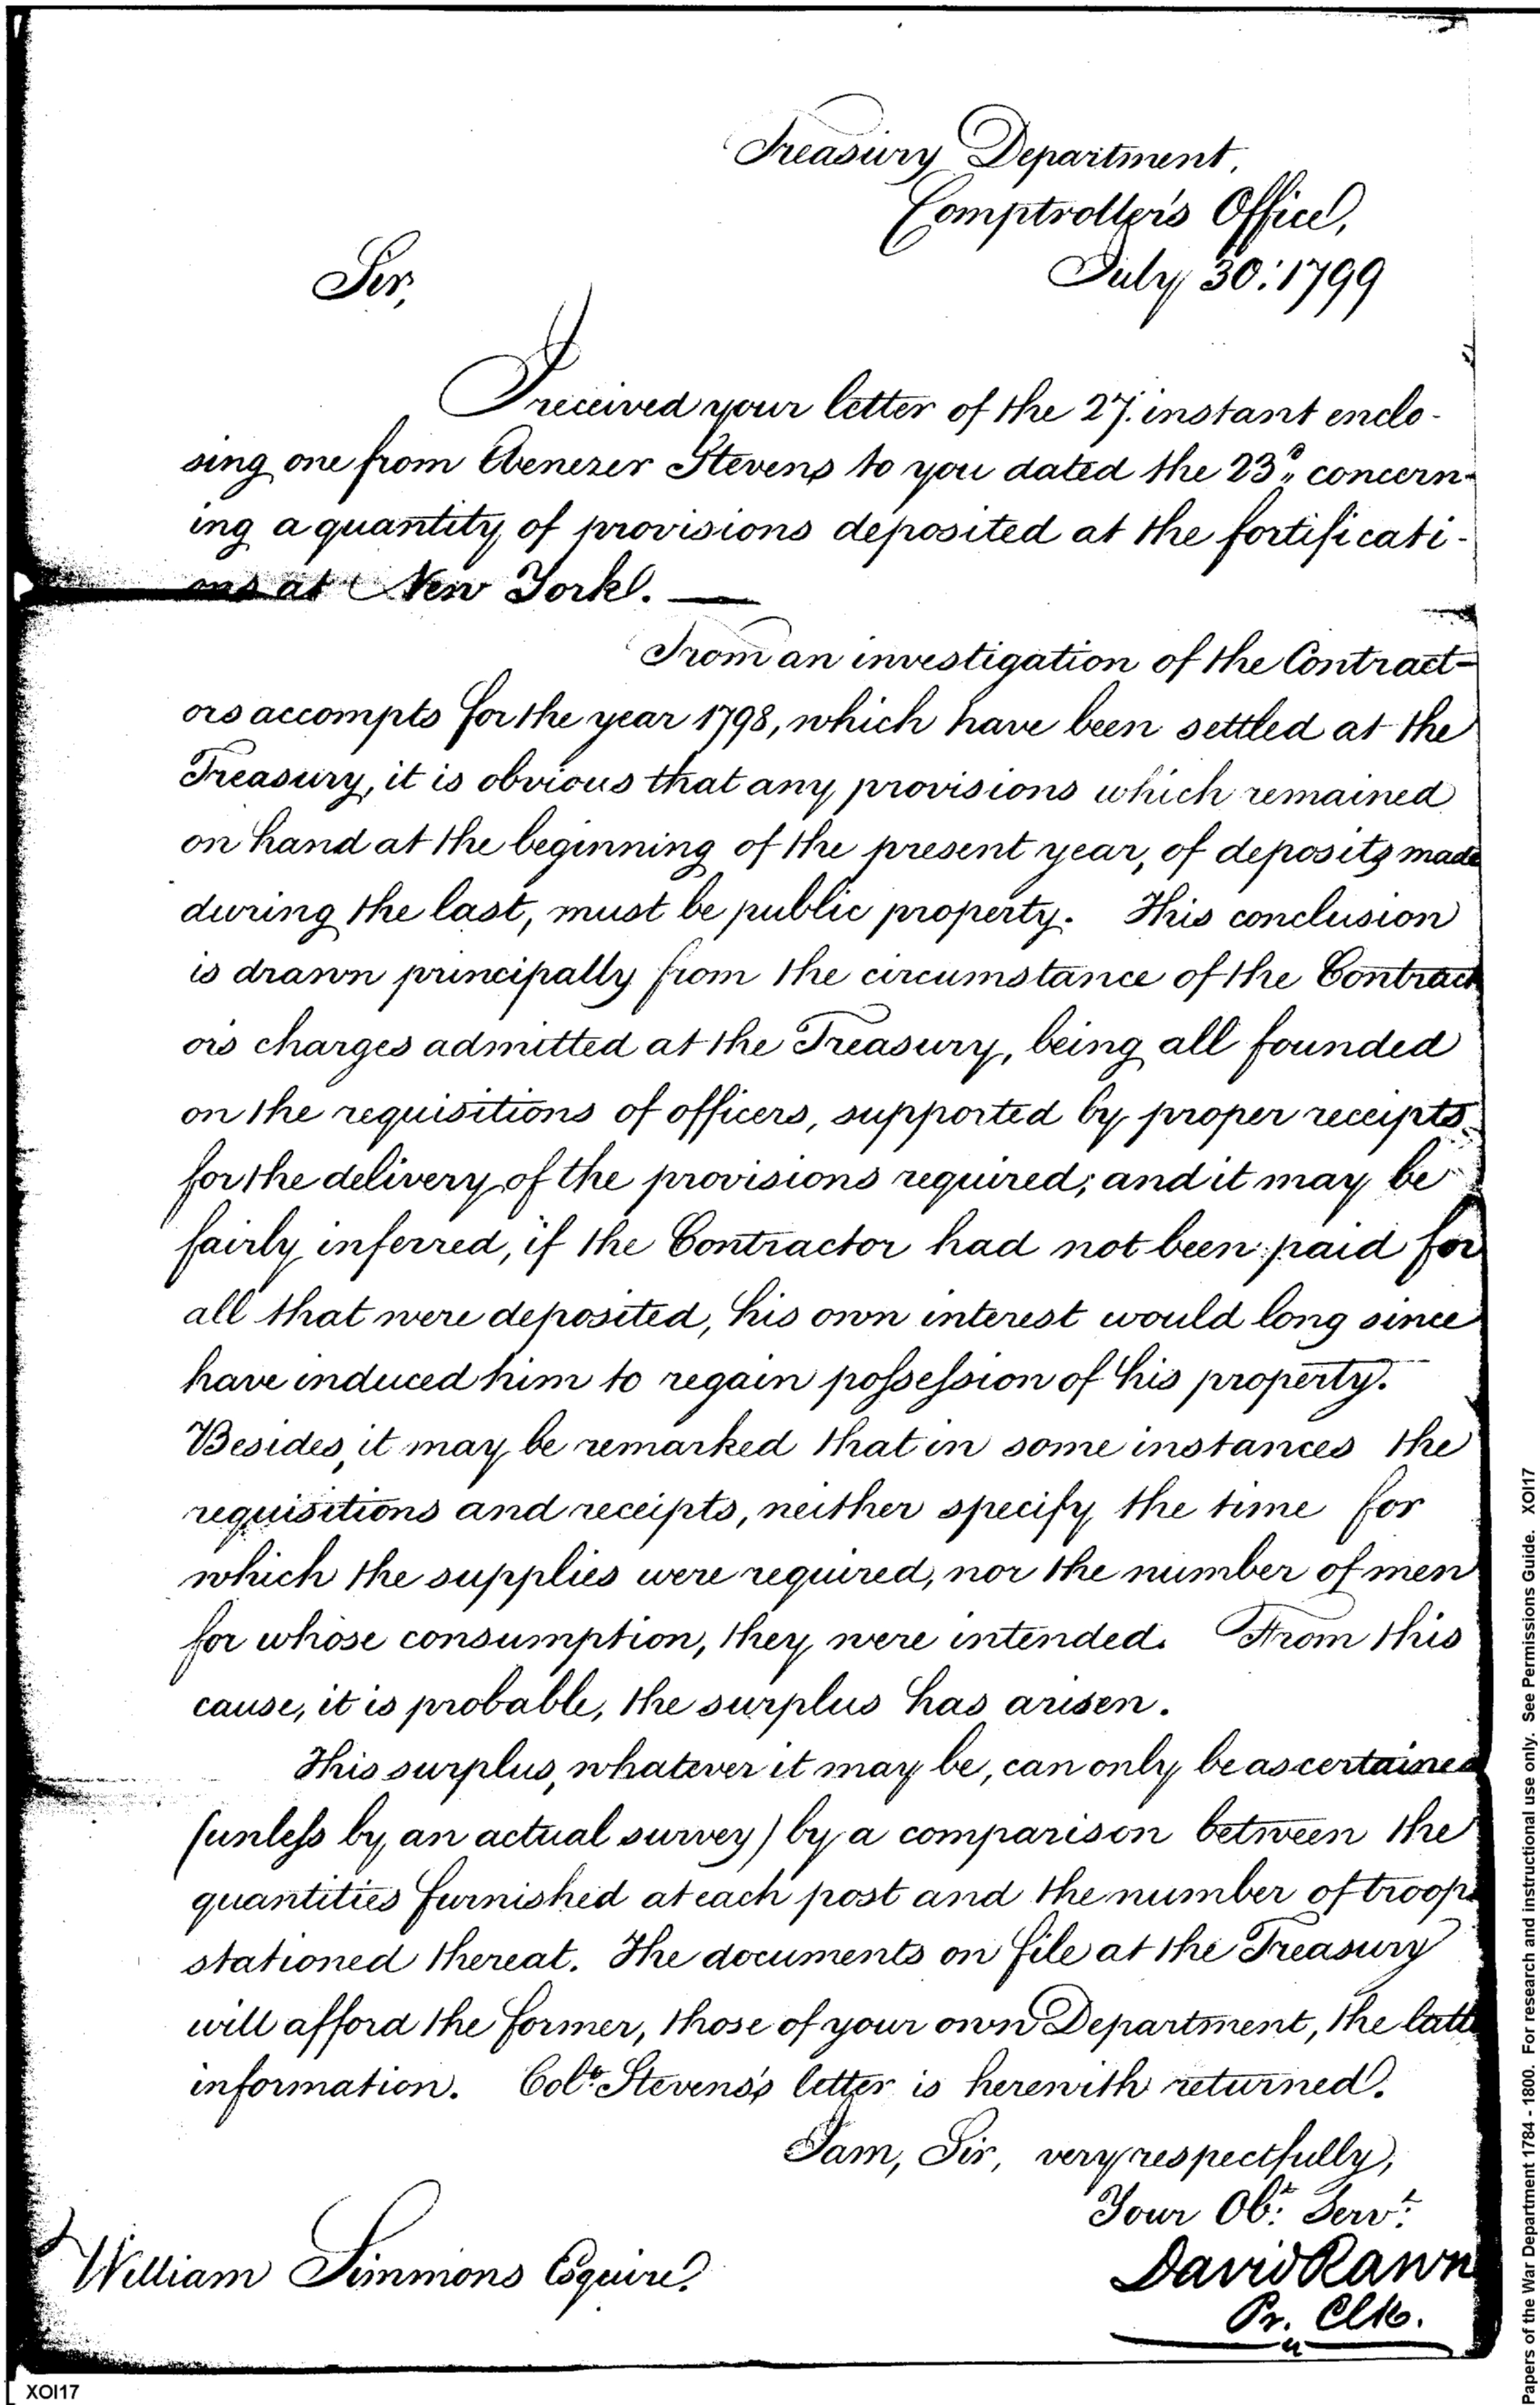 Treasury Department,
Comptroller's Office,
July 30: 1799
Sir,
I received your letter of the 27. instant enclo-
sing one from Ebenezer Stevens to you dated the 23d,, concern-
ing a quantity of provisions deposited at the fortificati-
ons at New York. —
From an investigation of the Contract-
ors accompts for the year 1798, which have been settled at the
Treasury, it is obvious that any provisions which remained
on hand at the beginning of the present year, of deposits made
during the last, must be public property. This conclusion
is drawn principally from the circumstance of the Contract
ors charges admitted at the Treasury, being all founded
on the requisitions of officers, supported by proper receipts
for the delivery of the provisions required; and it may be
fairly inferred, if the Contractor had not been paid for
all that were deposited, his own interest would long since
have induced him to regain possession of his property.
Besides, it may be remarked that in some instances the
requisitions and receipts, neither specify the time for
which the supplies were required, nor the number of men
for whose consumption, they were intended. From this
cause, it is probable, the surplus has arisen.
This surplus, whatever it may be, can only be ascertained
(unless by an actual survey) by a comparison between the
quantities furnished at each post and the number of troops
stationed thereat. The documents on file at the Treasury
will afford the former, those of your own Department, the latt
information. Colo. Stevens's letter is herewith returned.
I am, Sir, very respectfully,
Your Obt: Servt:
David Rawn
Pr. Clk.
William Simmons Esquire.
XOI17
Papers of the War Department 1784 - 1800. For research and instructional use only. See Permissions Guide. XOI17